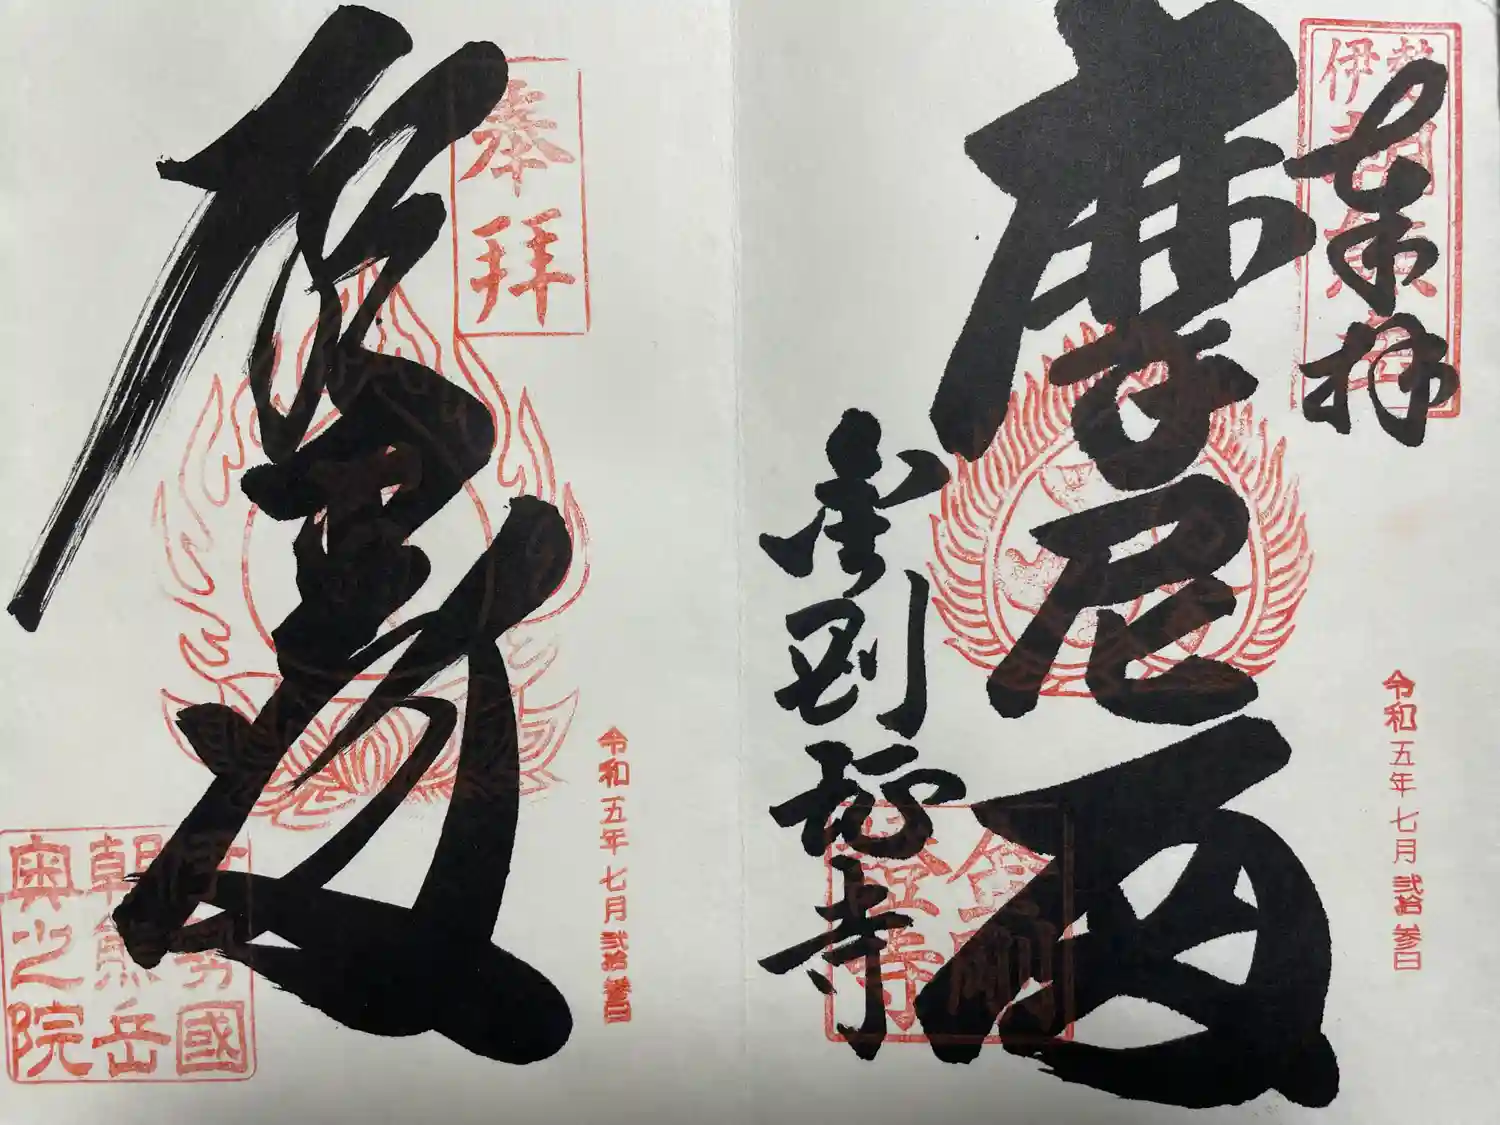 奉拝
伊勢朝熊岳
摩尼殿
金剛證寺
金剛
證寺
令和五年七月弐拾参日
奉拝
令和五年七月弐拾参日
伊勢國
朝熊岳
奥之院